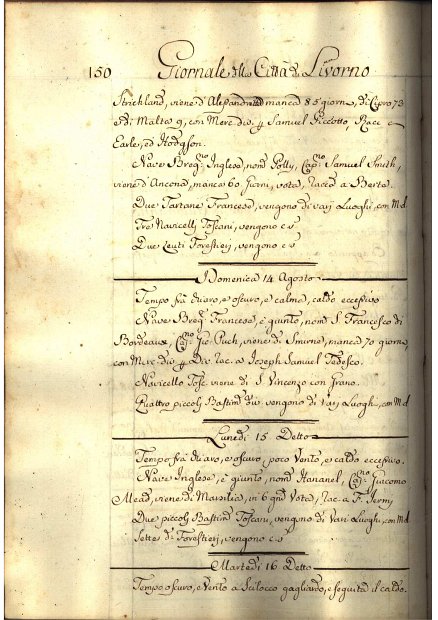 150 Giornale della Città di Livorno
Strickland, viene d'Alessandretta manca 85 giorni, di Cipro 73
e di Malta 9, con Merc. div. p Samuel Picciotto, Racc. a
Earle, ed Hodgson.
Nave Breg.no Inglese, nom.ta Polly, Cap.no Samuel Smith,
viene d'Ancona, manca 60 giorni, vota, Racc.ta a Berte.
Due Tartane Francese, vengono di varj Luoghi, con Md
Tre Navicelli Toscani, vengono e s
Due Leuti Forestieri, vengono e s
Domenica 14 Agosto
Tempo frà chiaro, e oscuro, e calma, caldo eccessivo
Nave Breg. Francese, è giunto, nom. S. Francesco di
Bordeaux, Cap. Gio. Puch, viene di Smirne, manca 70 giorni
con Merc. div. p Div. Rac. a Joseph Samuel Tedesco.
Navicello Tosc. viene di S. Vincenzo con grano.
Quattro piccoli Bastim. div. vengono di Varj Luoghi, con Md
Lunedì 15 Detto
Tempo frà chiaro, e oscuro, poco Vento, e caldo eccessivo.
Nave Inglese, è giunto, nom. Hananel, Cap.no Giacomo
Mead, viene di Marsilia, in 6 gni Vota, Rac. a F. Jermy
Due piccoli Bastim. Toscani, vengono di Varj Luoghi, con Md
Sette d. Forestieri, vengono e s
Martedì 16 Detto
Tempo oscuro, e Vento a Scilocco gagliardo, e seguita il caldo.